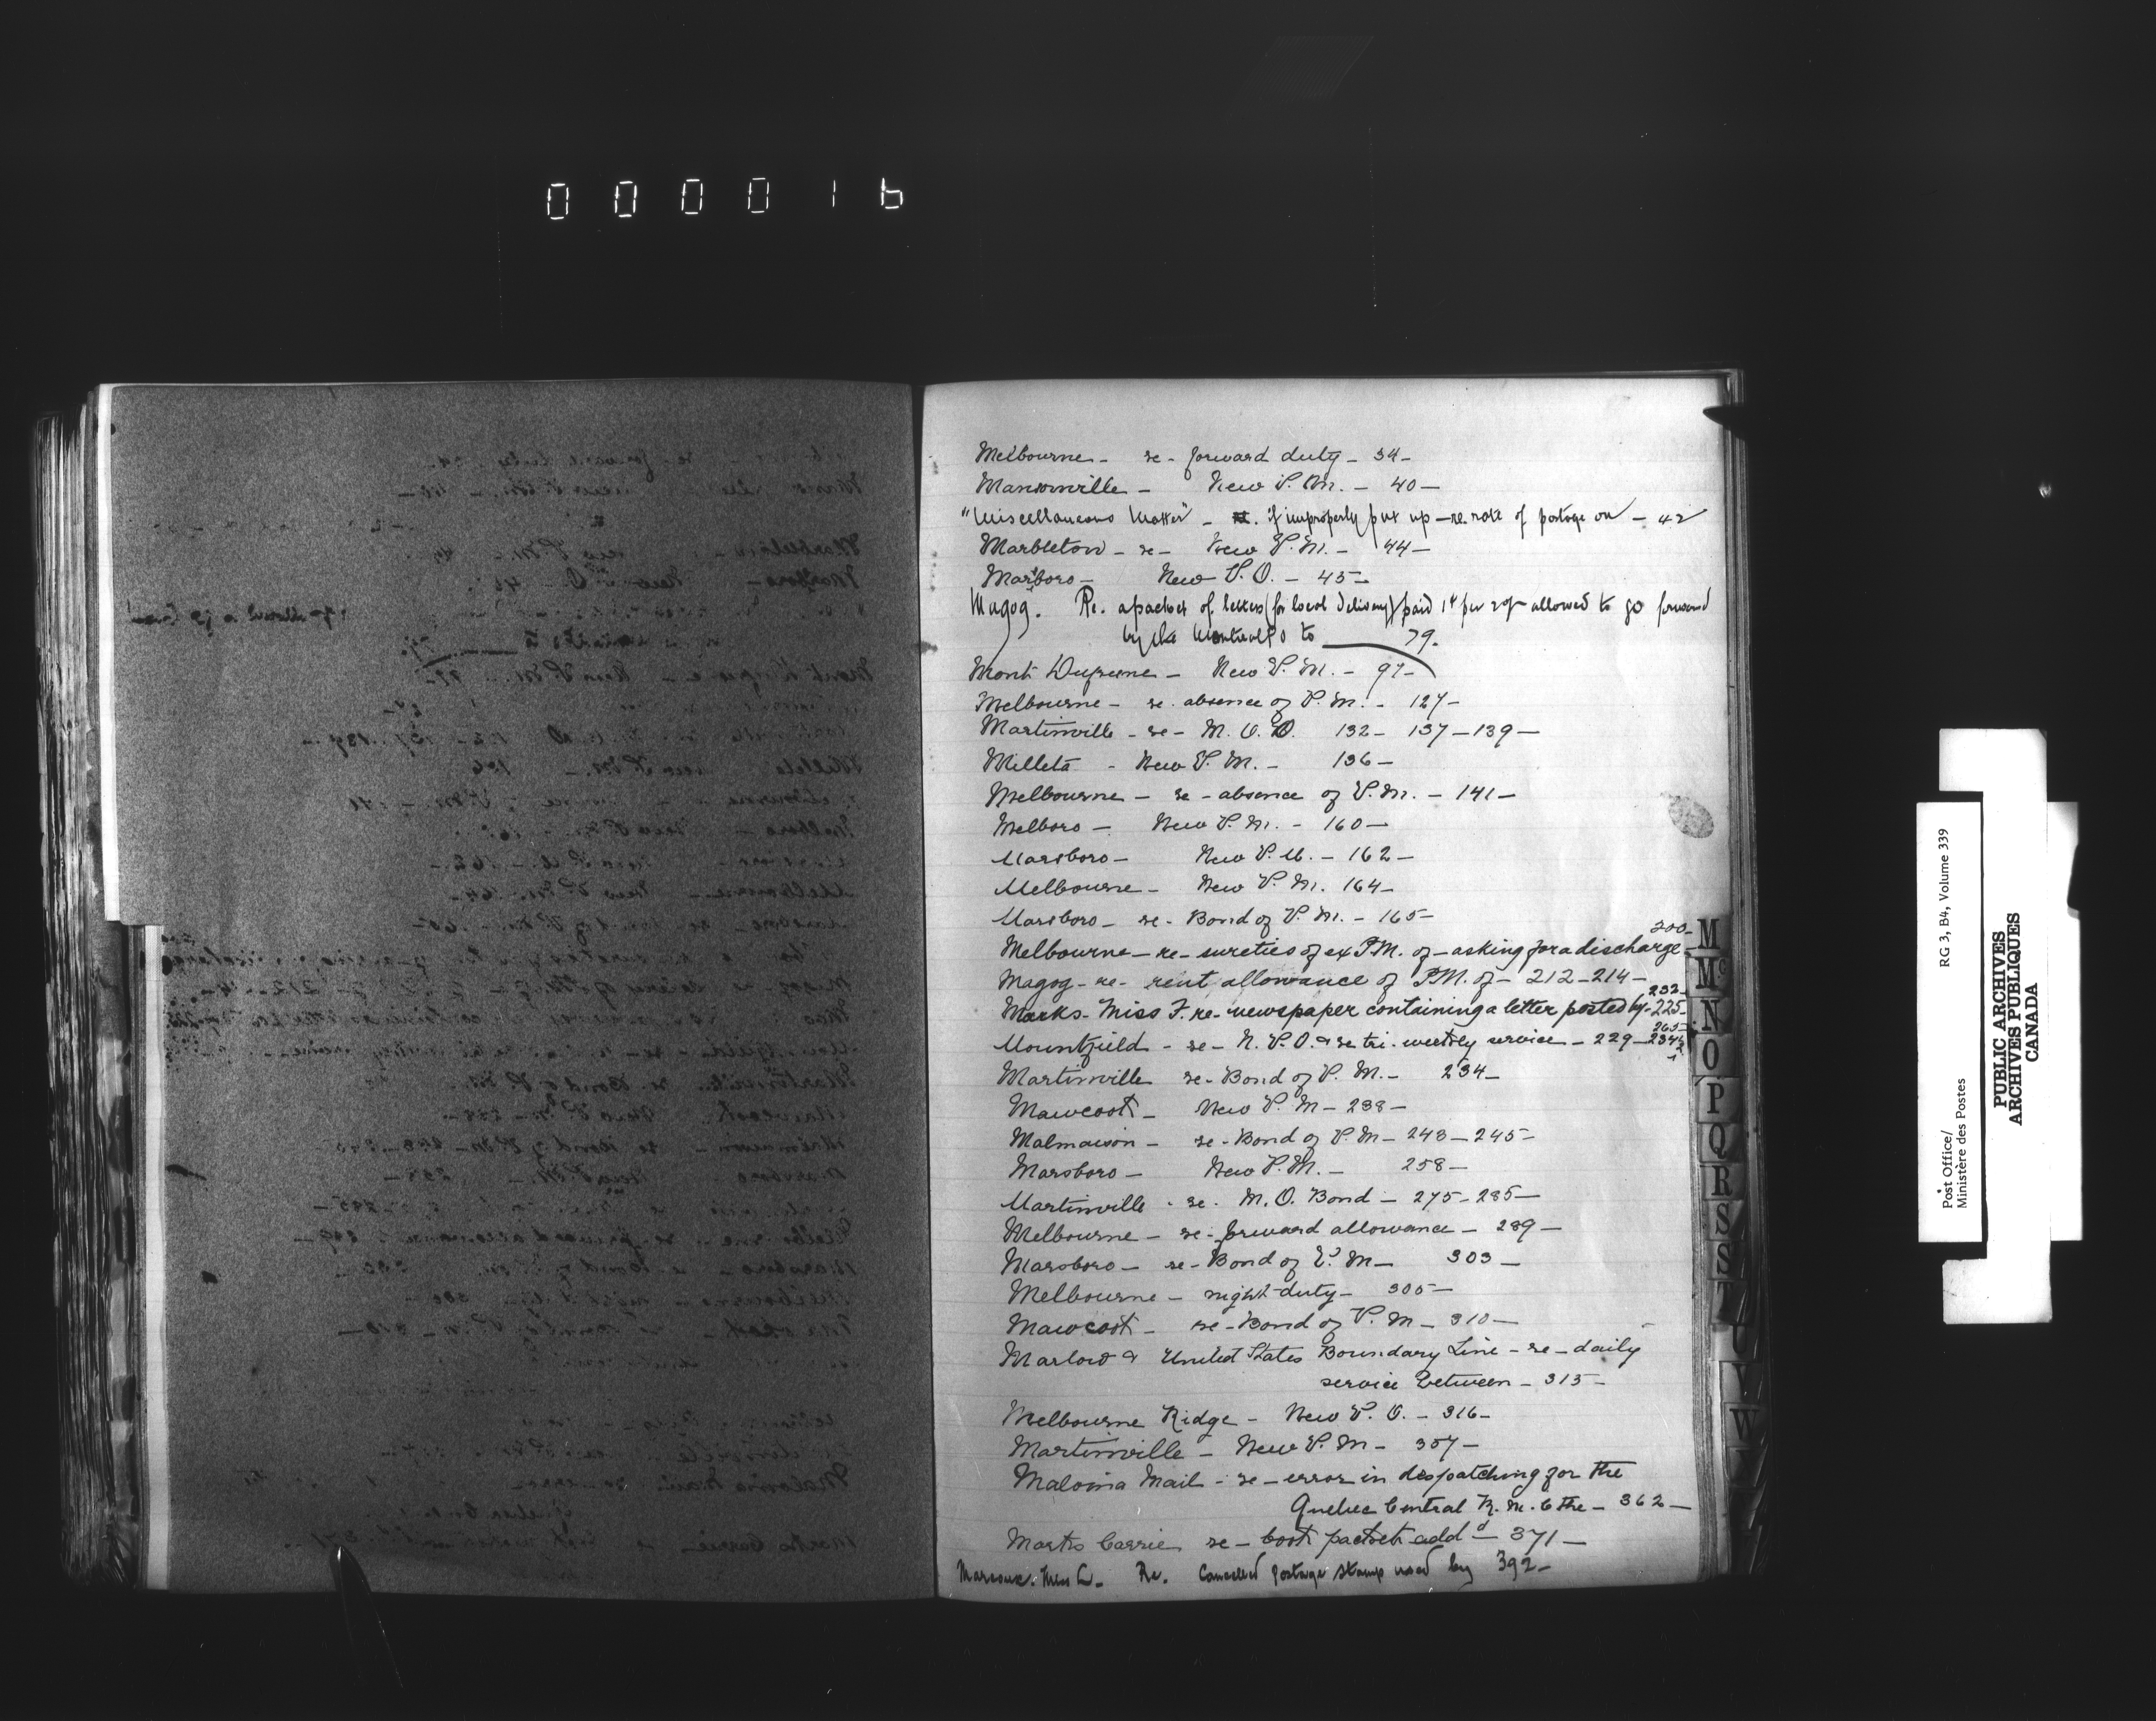 000016
Melbourne - re - forward duty - 34 -
Mansonville - New P. M. - 40 -
"Miscellaneous Matter" - if improperly put up - re. rate of postage on - 42
Marbleton - re - New P. M. - 44 -
Marsboro - New P. O. - 45 -
Magog. Re. a packet of letters (for local delivery) paid 1¢ per allowed to go forward
by the Montreal P O to 79.
Mont - New P. M. - 97 -
Melbourne - re. absence of P. M. - 127 -
Martinville - re - M. O. O. 132 - 137 - 139 -
Milleta - New P. M. - 136 -
Melbourne - re - absence of P. M. - 141 -
Melboro - New P. M. - 160 -
Marsboro - New P. M. - 162 -
Melbourne - New P. M. 164 -
Marsboro - re - Bond of P. M. - 165 -
Melbourne - re - sureties of ex P.M. of - asking for a discharge - 200 -
Magog - re - rent allowance of P.M. of - 212 - 214 -
Marks - Miss F. re - newspaper containing a letter posted by - 225 - 232 -
Mountfield - re - N. P. O. & re tri-weekly service - 229 - 234½ 265 -
Martinville re - Bond of P. M. - 234 -
Mawcook - New P. M - 238 -
Malmaison - re - Bond of P. M - 243 - 245 -
Marsboro - New P. M. - 258 -
Martinville - re. M. O. Bond - 275 - 285 -
Melbourne - re - forward allowance - 289 -
Marsboro - re - Bond of P. M - 303 -
Melbourne - night duty - 305 -
Mawcook - re - Bond of P. M - 310 -
Marlow & United States Boundary Line - re - daily
service between - 315 -
Melbourne Ridge - New P. O. - 316 -
Martinville - New P. M - 357 -
Malvina Mail - re - error in despatching for the
Quebec Central R. M. C the - 362 -
Marks Carrie re - book packet add^d - 371 -
Marcoux. Miss L. Re. Cancelled postage stamp used by 392 -
M
Mc
N
O
P
Q
R
S
S
T
U
V
W
RG 3, B4, Volume 339
Post Office/
Ministère des Postes
PUBLIC ARCHIVES
ARCHIVES PUBLIQUES
CANADA